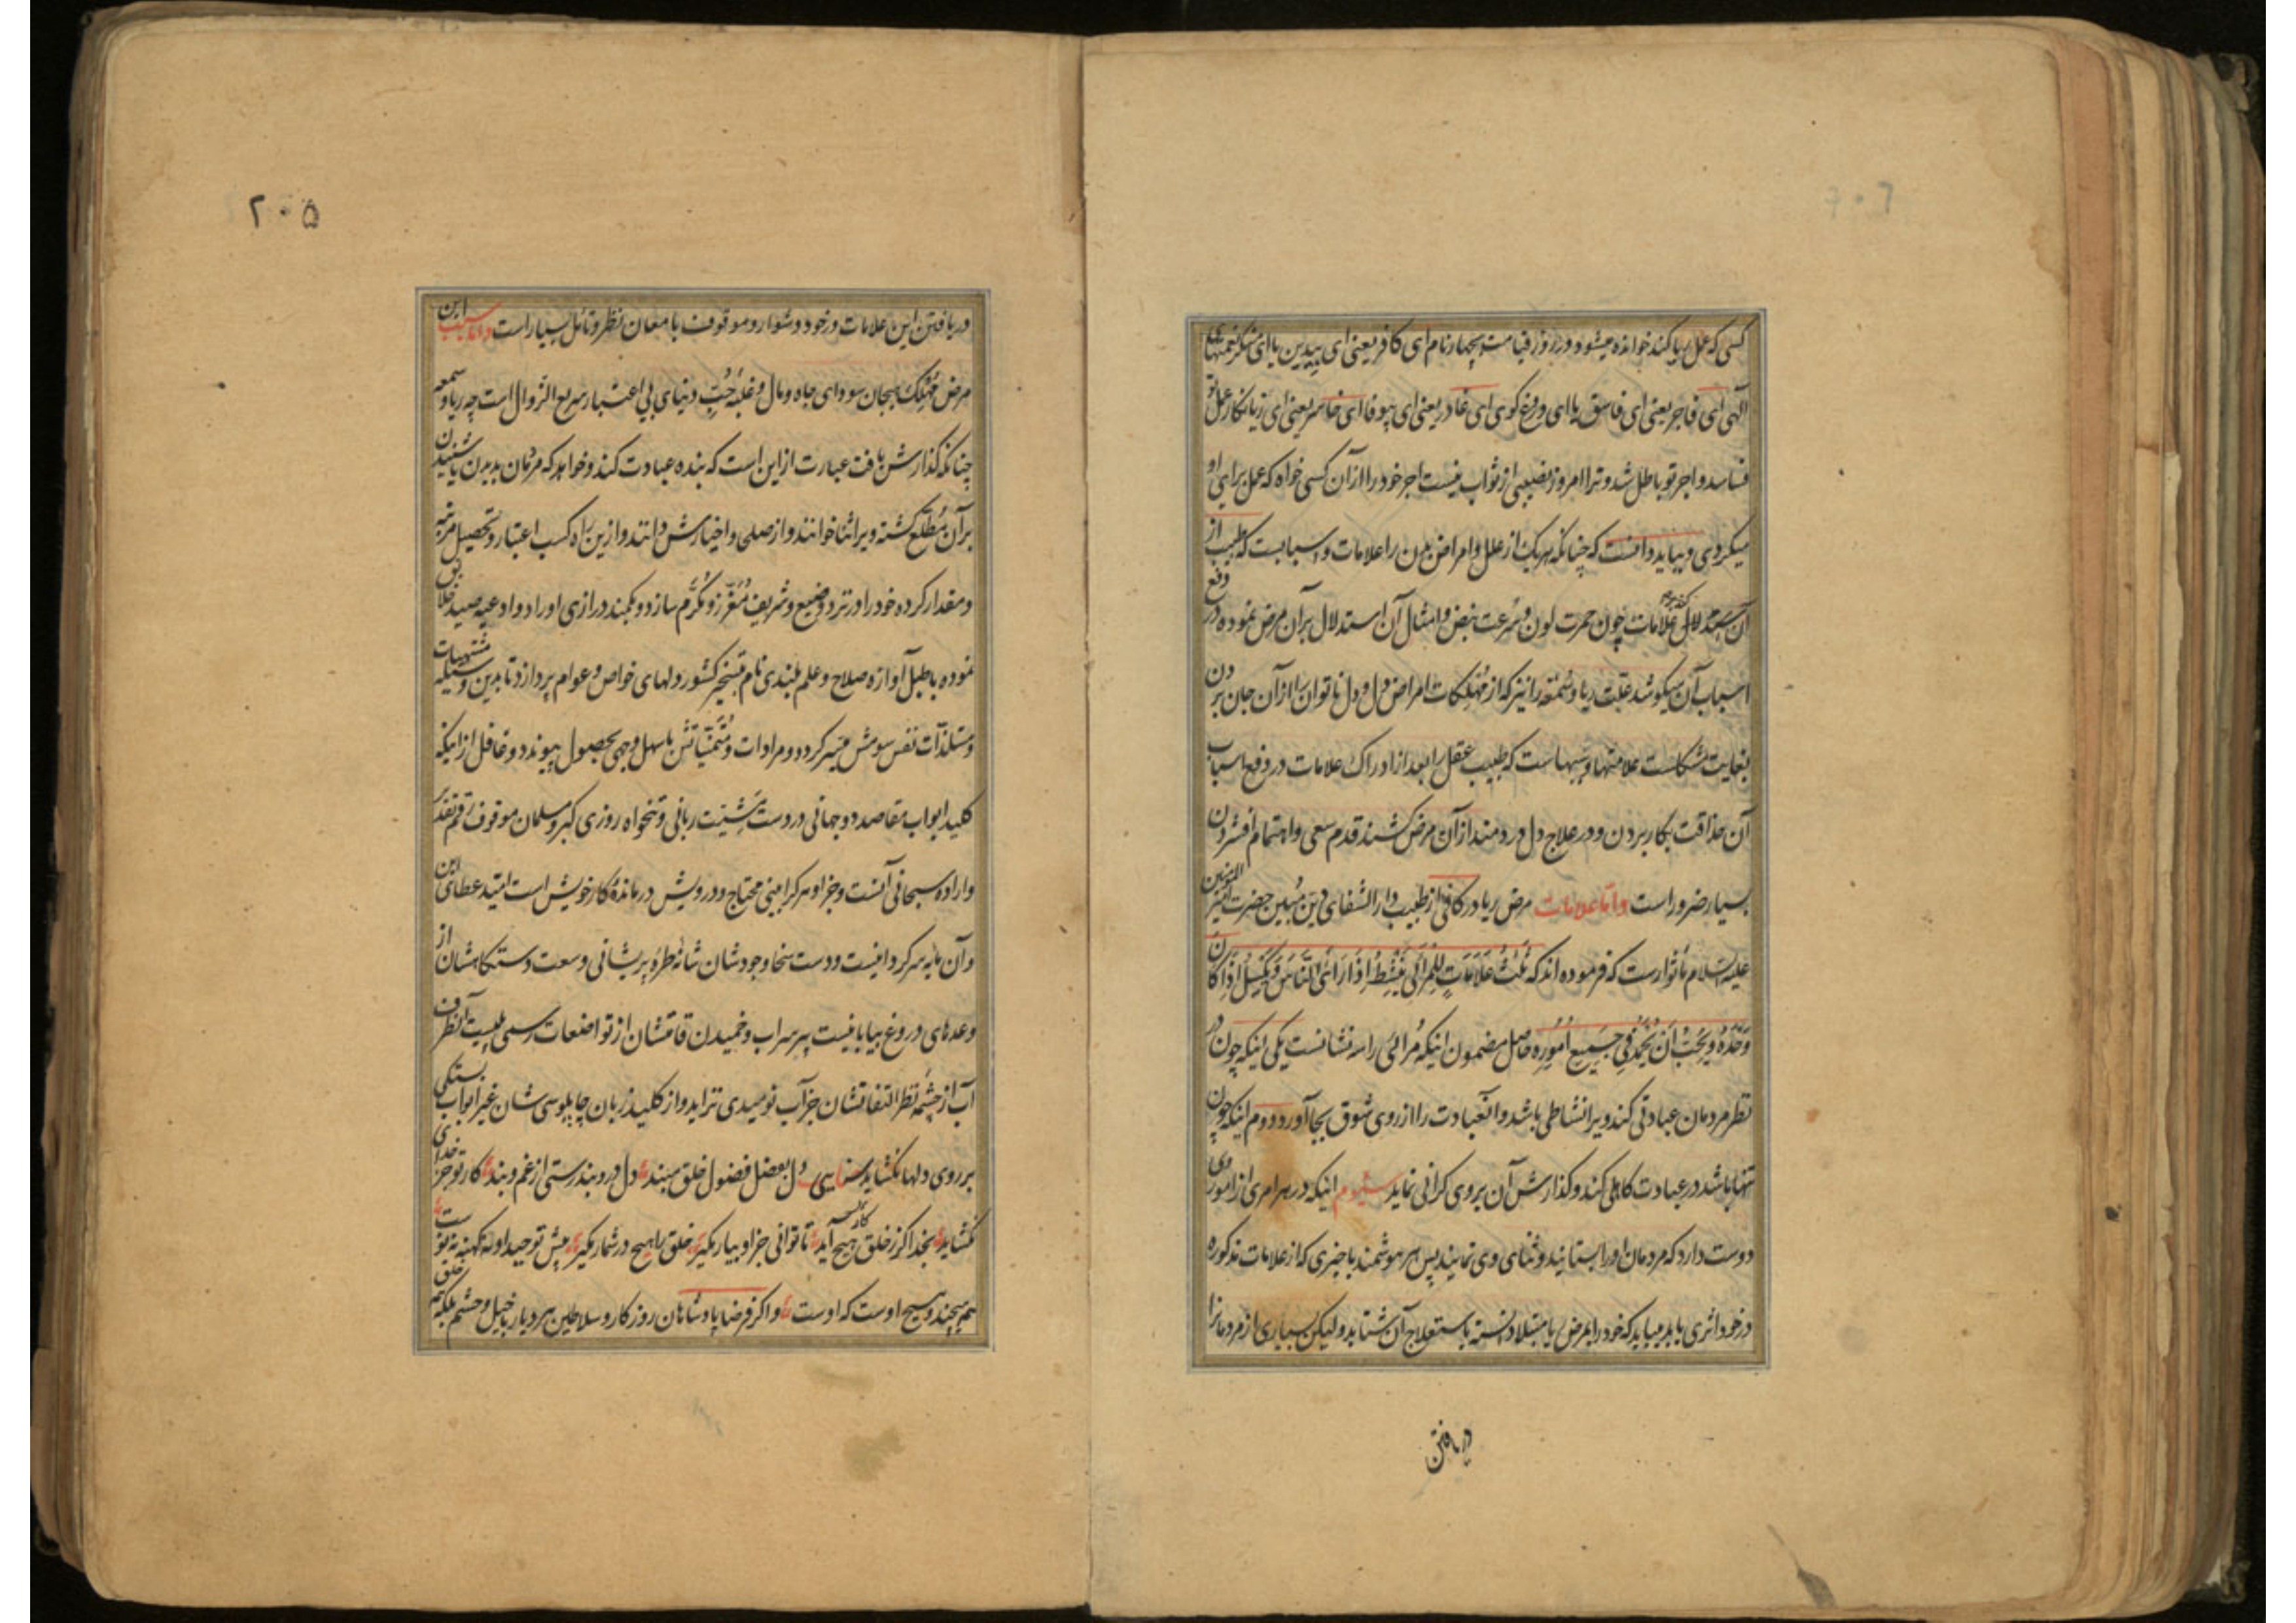 کسی که عمل ریا کند خوانده میشود در روز قیامت بچهار نام ای کافر یعنی ای بیدین یا ای منکر نعمتهای
آلهی ای فاجر یعنی ای فاسق یا ای دروغ کوی ای غادر یعنی ای بیوفا ای خاسر یعنی ای زیانکار عمل تو
فاسد و اجر تو باطل شد و ترا امروز نصیبی از ثواب نیست اجر خود را از آن کسی خواه که عمل برای او
میکردی و بباید دانست که چنانکه هر یک از علل و امراض بدن را علامات و اسبابیست که طبیب از
آن علامات چون حمرت لون و سرعت نبض و امثال آن استدلال بر آن مرض نموده در دفع
اسباب آن میکوشد علت ریا و سمعه را نیز که از مهلکات امراض دل و دل ناتوان را از آن جان بردن
بغایت مشکلست علامتها و سببهاست که طبیب عقل را بعد از ادراک علامات در دفع اسباب
آن حذاقت بکار بردن و در علاج دل دردمند از آن مرض کشند قدم سعی و اهتمام افشردن
بسیار ضرور است و اما علامات مرض ریا در کافی از طبیب دار الشفای دین مبین حضرت امیر المومنین
علیه السلام ماثور است که فرموده اند که ثَلٰثُ عَلَامَاتٍ لِلْمُرَائِی یَنْشَطُ اِذَا رَاَی النَّاسَ وَیَکْسَلُ اِذَا کَانَ
وَحْدَهُ وَیُحِبُّ اَنْ یُحْمَدَ فِی جَمِیعِ اُمُورِهِ حاصل مضمون اینکه مُرائی را سه نشانست یکی اینکه چون در
نظر مردمان عبادتی کند ویرا نشاطی باشد و آنعبادت را از روی شوق بجا آورد دوم اینکه چون
تنها باشد در عبادت کاهلی کند و کذارش آن بر وی کرانی نماید سیوم اینکه در هر امری از امور وی
دوست دارد که مردمان او را بستایند و ثنای وی نمایند پس هر هوشمند با چیزی که از علامات مذکوره
در خود اثری یابد میباید که خود را بمرض ریا مبتلا دانسته باستعلاج آن شتابد و لیکن بسیاری از مردمانرا
دریافتن
۲۰۵
دریافتن این علامات در خود دشوار و موقوف بامعان نظر و تامل بسیار است و اما سبب این
مرض مُهلِک هیجان سودای جاه و مال و غلبه حُبّ دنیای بی اعتبار سریع الزوال است چه ریا و سمعه
چنانکه کذارش یافت عبارت از این است که بنده عبادت کند و خواهد که مردمان بدیدن یا شنیدن
بر آن مُطّلع کشته ویرا ثنا خوانند و از صلحی و اخیارش دانند و ازین راه کسب اعتبار و تحصیل مرتبه
و مقدار کرده خود را در نزد وضیع و شریف مُعَزّز و مُکَرَّم سازد و بکمند درازی اوراد و ادعیه صید خلایق
نموده با طبل آوازه صلاح و علم بلندی نام بتسخیر کشور دلهای خواص و عوام پردازد تا بدین وسیله مشتهیات
و مستلذّات نفس شومش میسر کردد و مرادات و مُتَمَنّیاتش باسهل وجهی بحصول پیوندد و غافل از اینکه
کلید ابواب مقاصد دو جهانی در دست مشیّت ربانی و تنخواه روزی کبر و مسلمان موقوف رقم تقدیر
و اراده سبحانی آنست و جز او هر کرا بینی محتاج و درویش درمانده کار خویش است امید عطای این
و آن مایه سرکردانیست و دست سخا وجودشان شانه طره پریشانی وسعت دستکاهشان از
وعده های دروغ بیابانیست پر سراب و خمیدن قامتشان از تواضعات رسمی
آب از چشمه نظر التفاتشان جز آب نومیدی نزاید و از کلید زبان چاپلوسی شان غیر ابواب بستکی
بر روی دلها نکشاید سنایی دل بفضل فضول خلق مبند دل درو بند رستی از غم و بند کار تو جز خدای
نکشاید بخدا کر ز خلق هیچ آید تا توانی جز او بیار مکیر خلق را هیچ در شمار مکیر پیش توحید او نه کهنه نه نو ست
همه هیچند هیچ اوست که اوست و اکر فرضا پادشاهان روزکار و سلاطین هر دیار با خیل و حشم بلکه همه خلق